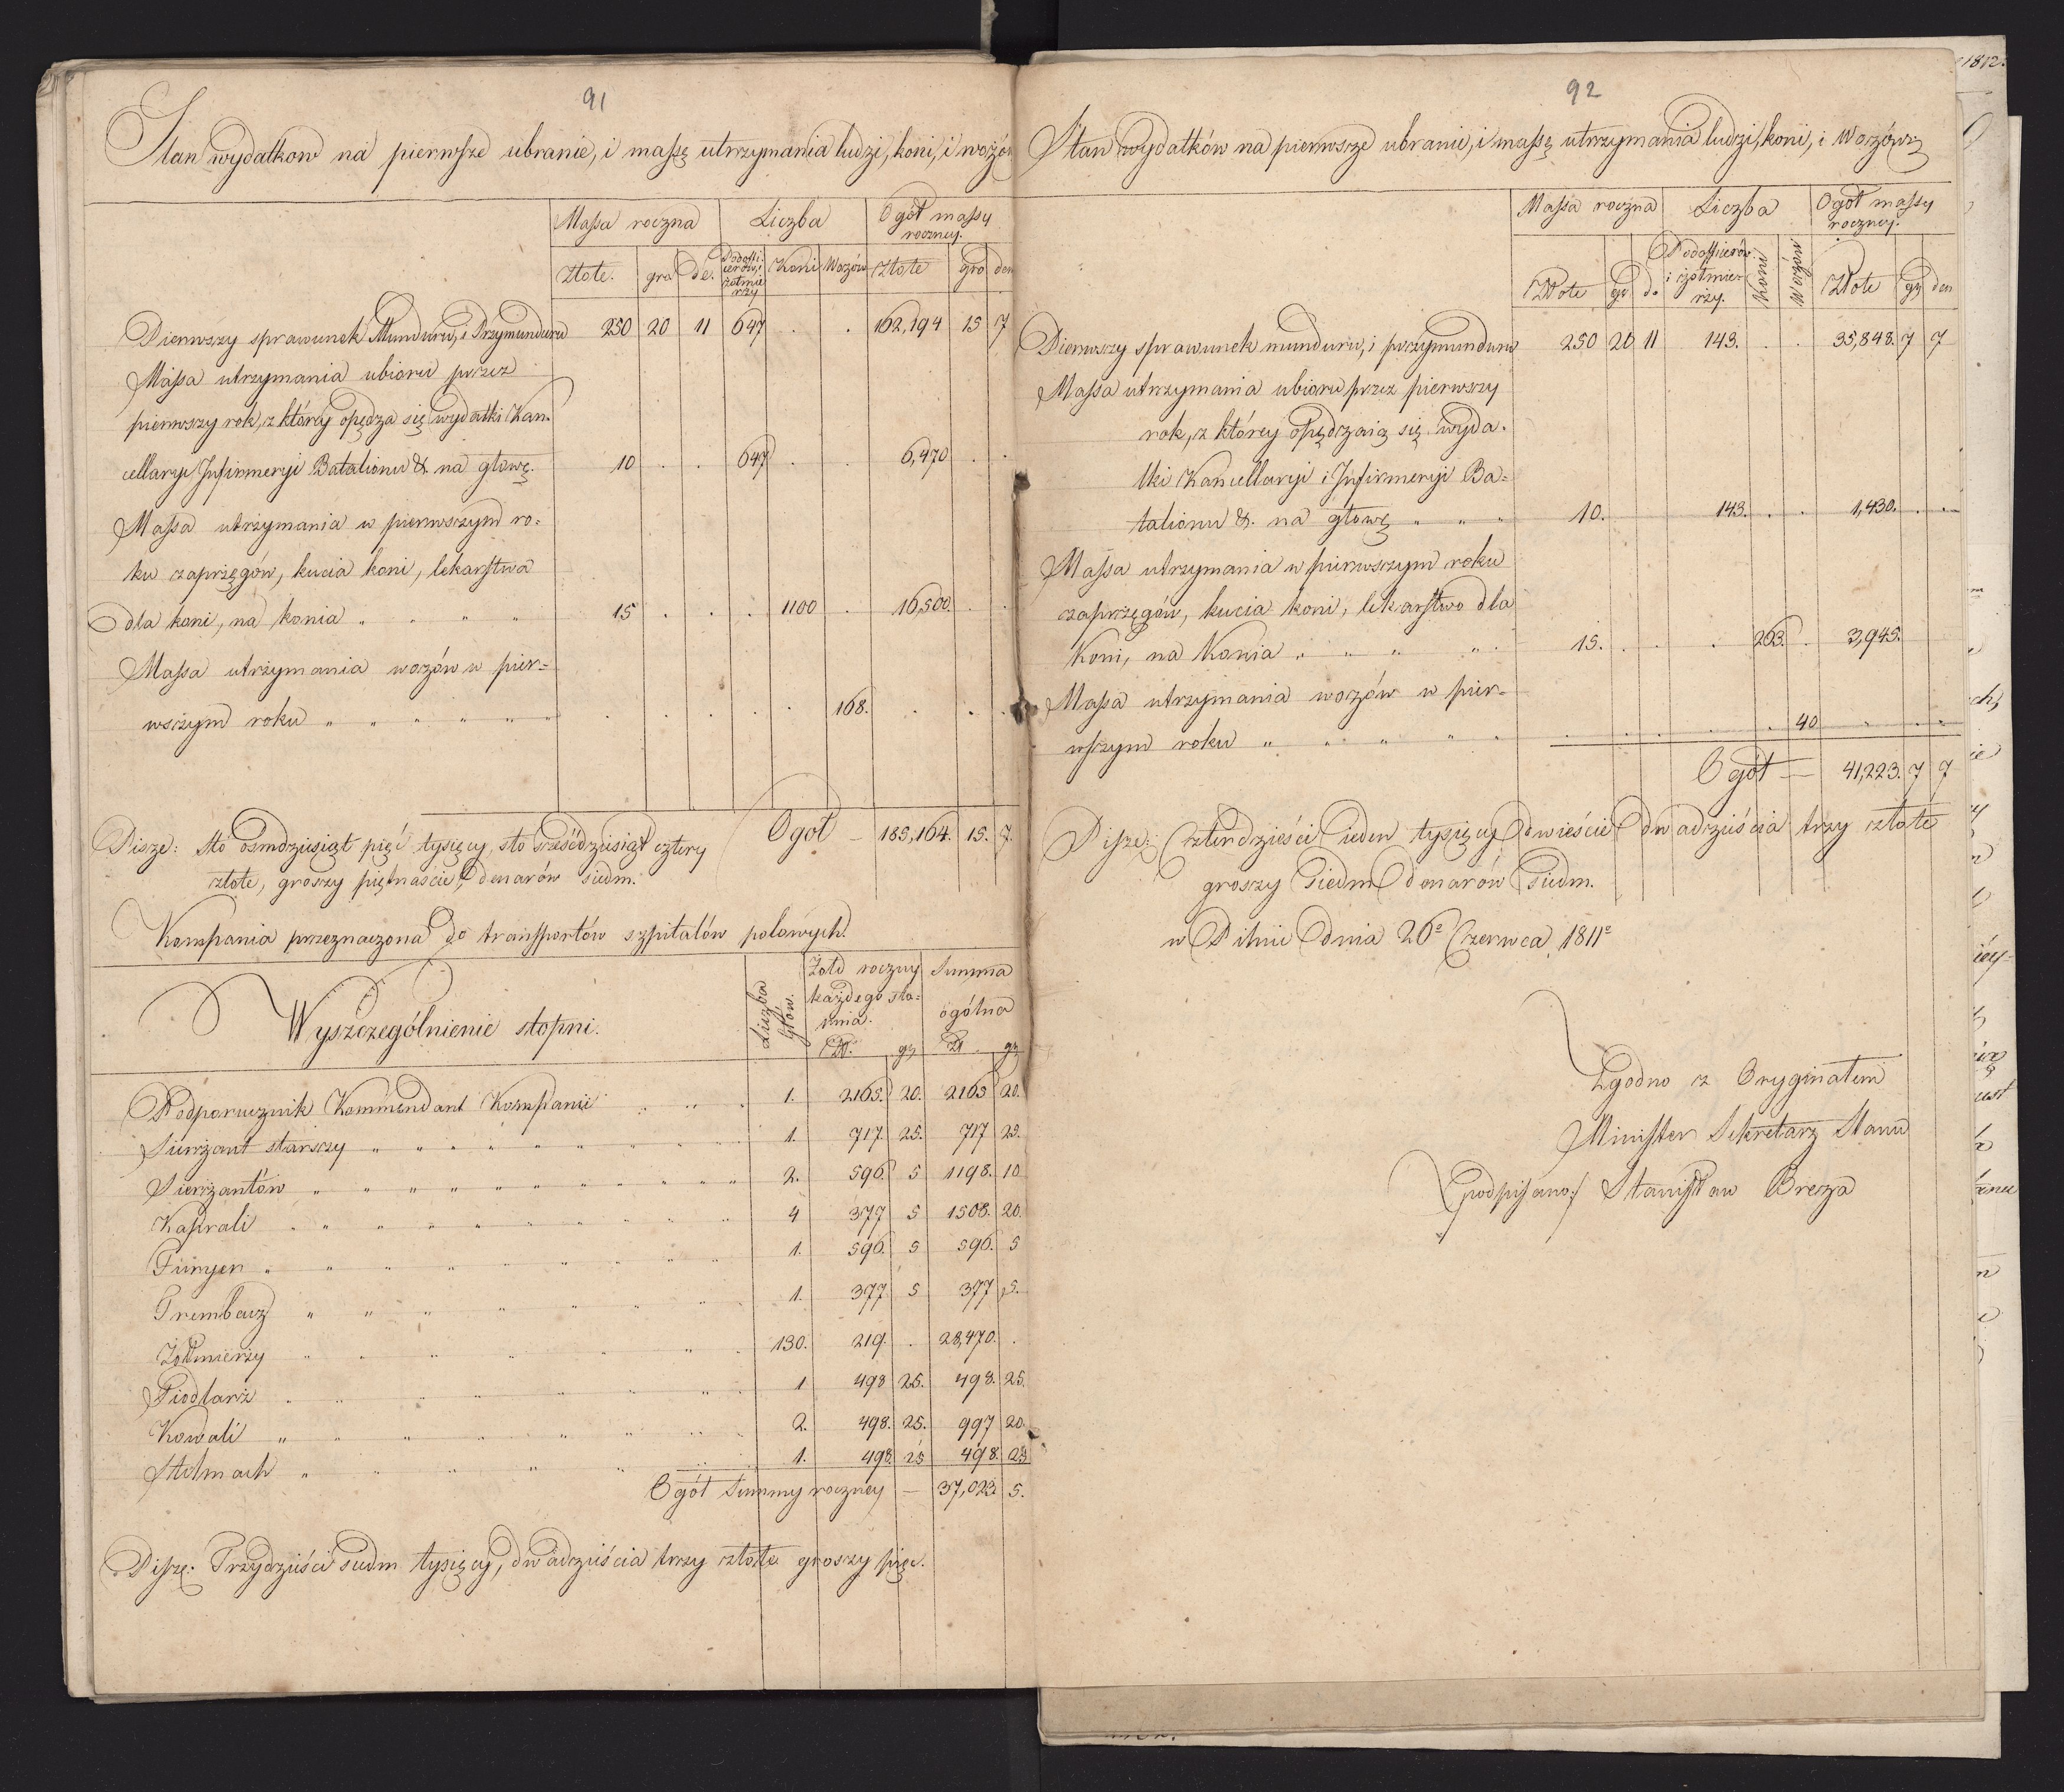 91
Stan wydatkow na pierwsze ubranie, i massę utrzymania ludzi, koni, i wozów
Massa roczna Liczba Ogół massy roczney.
złote. gra de. Podofficerów, i żołnierzy Koni Wozów złote gro den
Pierwszy sprawunek Munduru, i Przymunduru 250 20 11 647 . . 162,194 15 7
Massa utrzymania ubioru przez
pierwszy rok, z którey opędza się wydatki Kan-
cellaryi Infirmeryi Batalionu &. na głowę. 10 . . 647 . . 6,470 . .
Massa utrzymania w pierwszym ro-
ku zaprzęgów, kucia koni, lekarstwa
dla koni, na konia " " " " 15 . . . 1100 . 16,500. . .
Massa utrzymania wozów w pier-
wszym roku " " " " " " . . . . . 168. . . .
Ogół — 185,164. 15. 7.
Pisze: sto osmdziesiąt pięć tysięcy sto sześćdziesiąt cztery
złote, groszy piętnaście, denarów siedm.
Kompania przeznaczona do transportów szpitalów polowych.
Wyszczególnienie stopni. Liczba głów. Żołd roczny każdego stopnia. Summa ogólna
Zł. gr. Zł. gr
Podporucznik Kommendant Kompanii 1. 2165. 20. 2165 20.
Sierżant starszy 1. 717. 25. 717 25.
Sierżantów 2. 596. 5 1198. 10
Kaprali 4 377 5 1508. 20.
Furyer 1. 596. 5 596. 5
Trembacz 1. 377 5 377 5.
Żołnierzy 130. 219. . 28,470. .
Siodlarz 1 498 25. 498. 25.
Kowali 2. 498. 25. 997 20.
Stelmach 1. 498. 25 498. 25
Ogół Summy roczney — 37,023. 5.
Piszę: Trzydzieści siedm tysięcy, dwadzieścia trzy złote groszy pięć.
92
Stan wydatków na pierwsze ubranie, i massę utrzymania ludzi, koni, i Wozów
Massa roczna Liczba Ogół massy roczney.
Złote gr. de Podofficerów i żołnierzy. Koni Wozów Złote gr den
Pierwszy sprawunek munduru, i przymunduru 250 20 11 143. . . 35,848. 7 7
Massa utrzymania ubioru przez pierwszy
rok, z którey opędzaią się wyda-
tki Kancellaryi i Infirmeryi Ba-
talionu &. na głowę " " " 10. 143. . . 1,430. . .
Massa utrzymania w pierwszym roku
zaprzęgów, kucia koni, lekarstwo dla
Koni, na Konia " " " " 15. . . . 263. . 3,945.
Massa utrzymania wozów w pier-
wszym roku " " " " " . . . . . 40 " . "
Ogół — 41,223. 7 7
Pisze: Czterdzieści ieden tysięcy dwieście dwadzieścia trzy złote
groszy siedm denarów siedm.
w Pilnie dnia 26º Czerwca 1811º
Zgodno z Oryginałem
Minister Sekretarz Stanu
/podpisano:/ Stanisław Breza
1812.